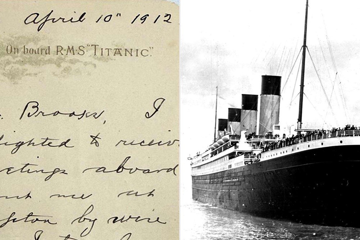 April 10th 1912
On board R.M.S. "TITANIC."
Brooks, I
lighted to receiv
etings aboard
nt me at
pton by wire